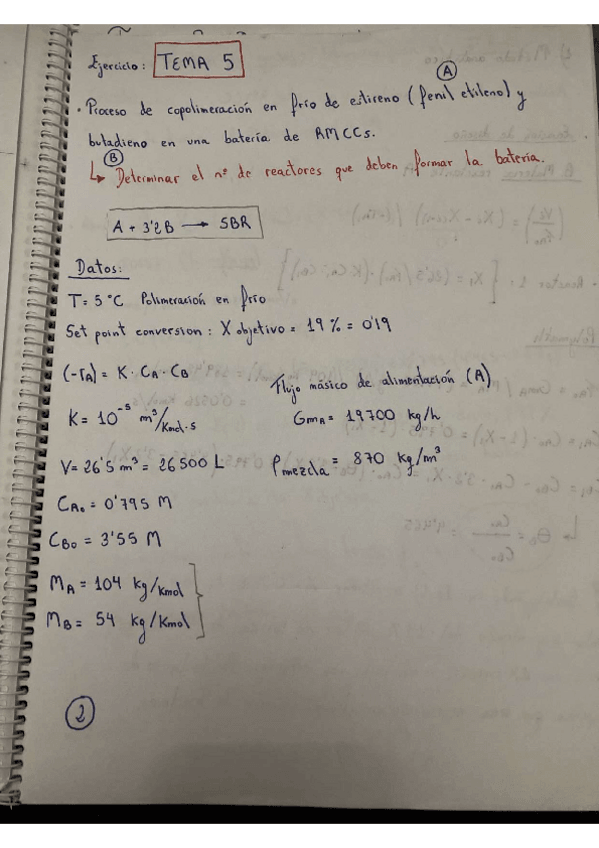 Ejercicio: TEMA 5
(A)
· Proceso de copolimeración en frío de estireno (fenil etileno) y
butadieno en una batería de RMCCs.
(B)
↳ Determinar el nº de reactores que deben formar la batería.
A + 3'2B → SBR
Datos:
T = 5 °C Polimeración en frío
Set point conversion : X objetivo = 19 % = 0'19
(-rA) = K · CA · CB
Flujo másico de alimentación (A)
K = 10⁻⁵ m³/Kmol·s
GmA = 19700 kg/h
V = 26'5 m³ = 26500 L
ρmezcla = 870 kg/m³
CA₀ = 0'795 M
CB₀ = 3'55 M
MA = 104 kg/Kmol
MB = 54 kg/Kmol
2